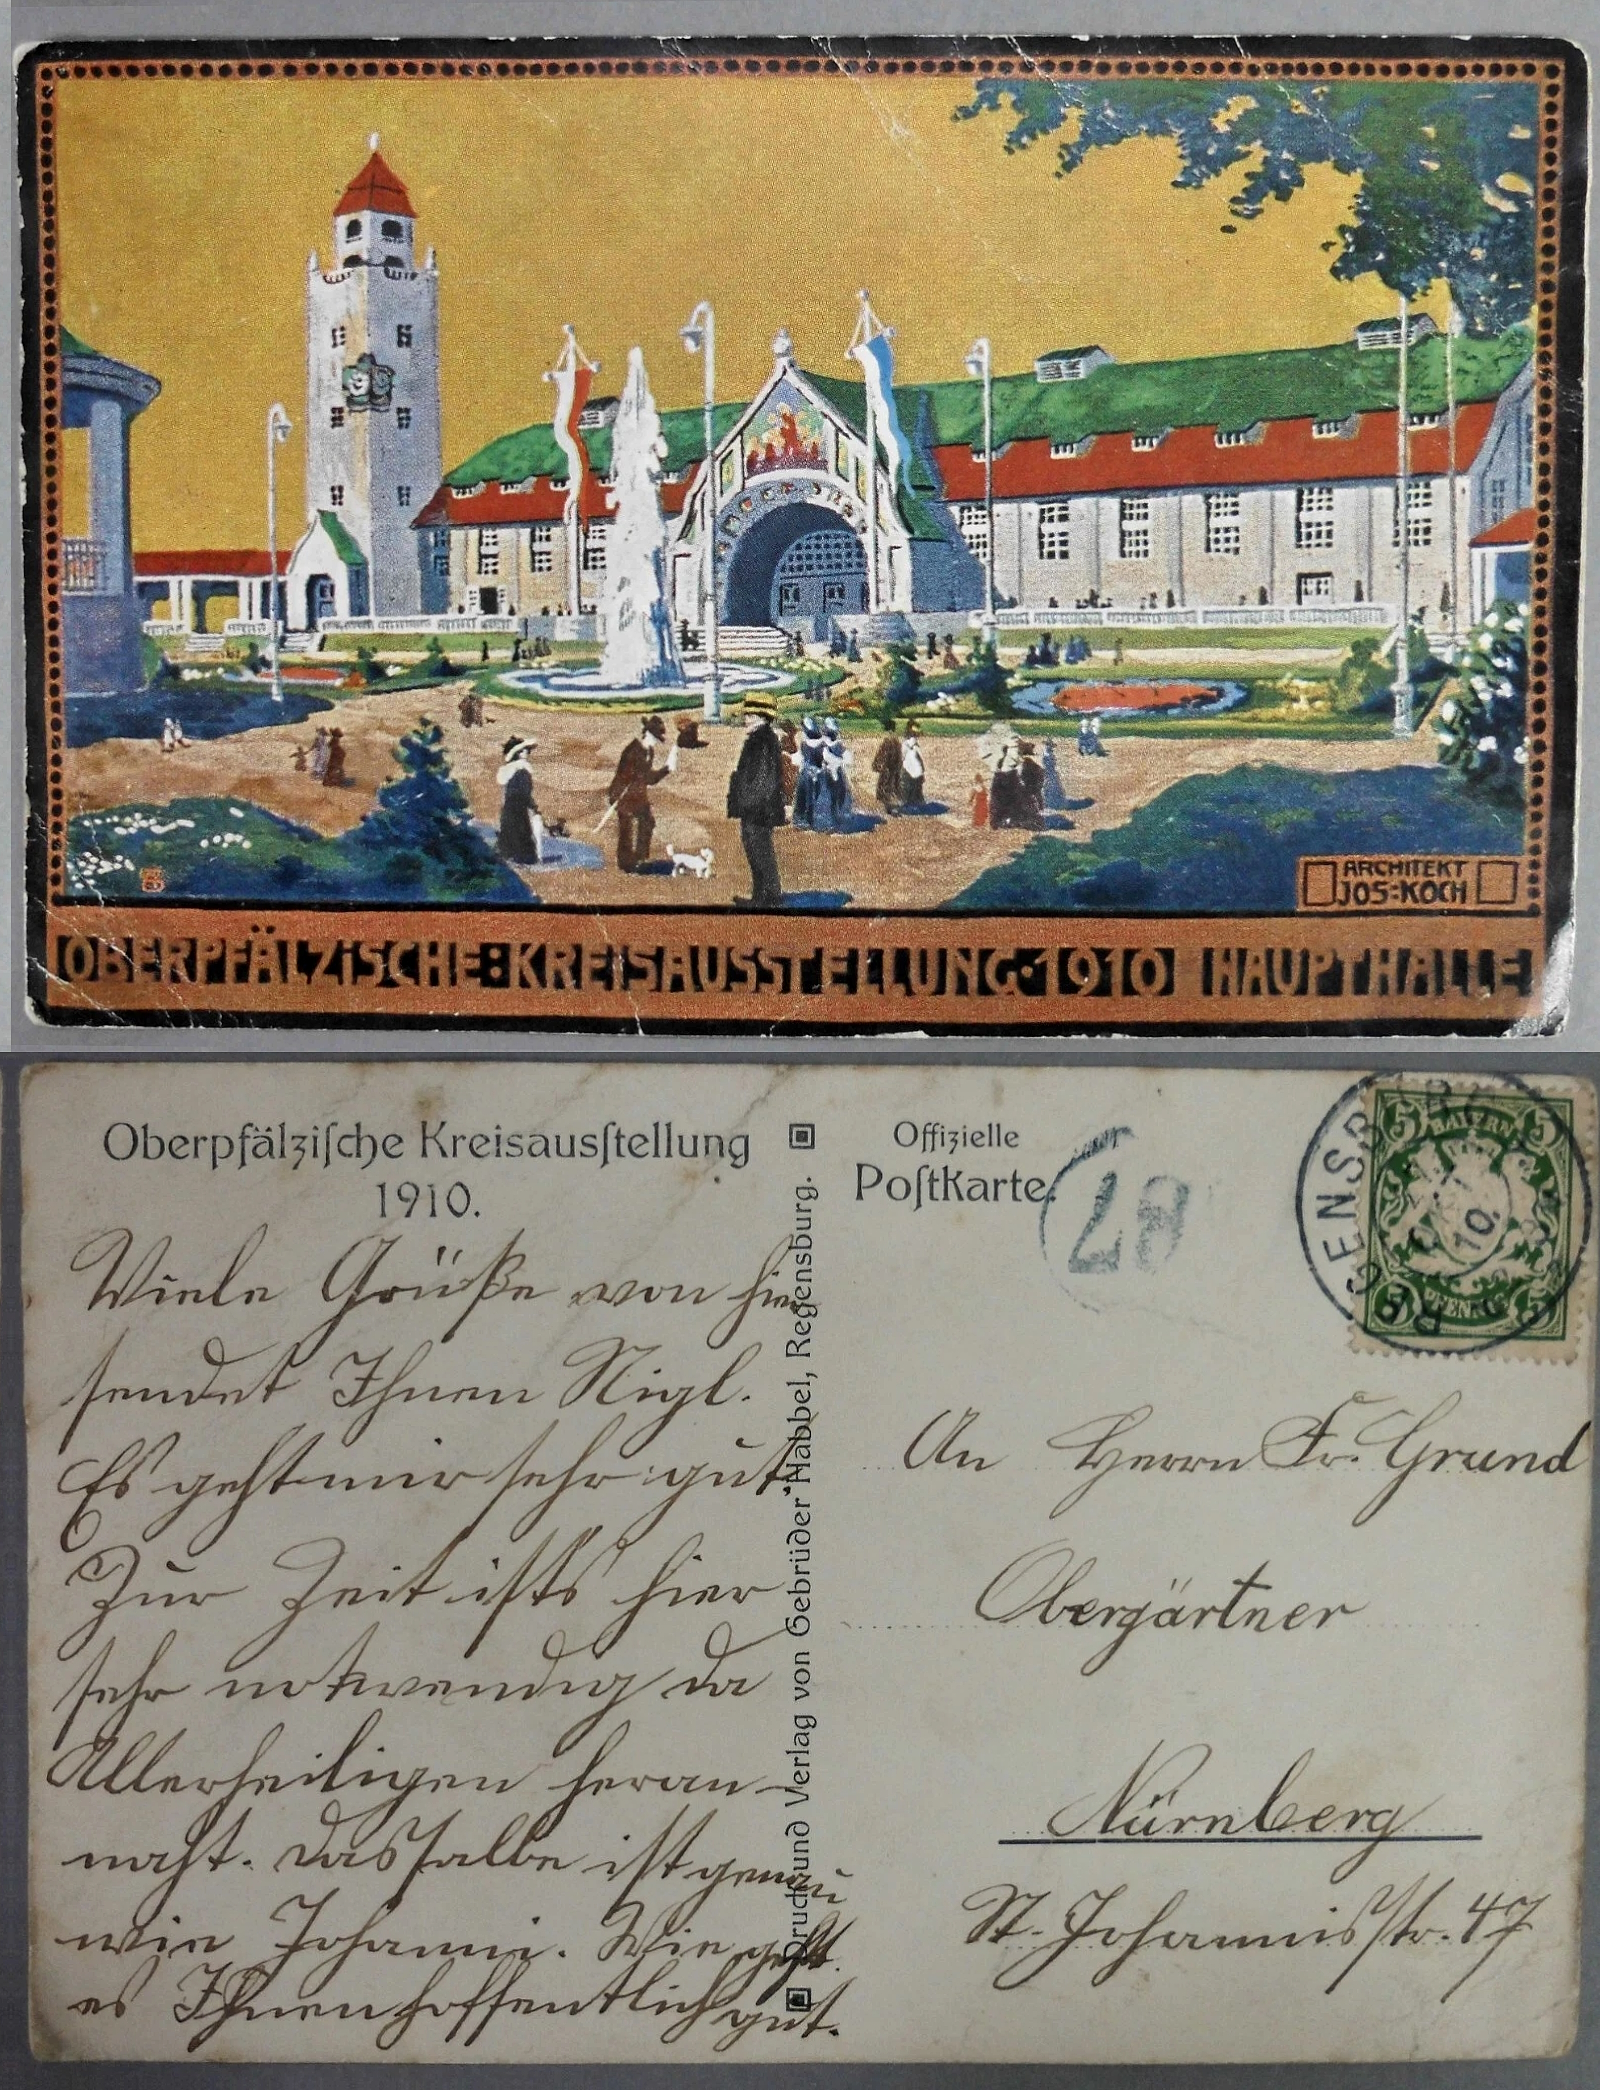 ARCHITEKT
JOS:KOCH
OBERPFÄLZISCHE:KREISAUSSTELLUNG·1910 HAUPTHALLE
Oberpfälziſche Kreisausſtellung
1910.
Offizielle
Poſtkarte.
28
REGENSBURG
10.
BAYERN
5 5
PFENNIG
5 5
Viele Grüße von hier
sendet Ihnen Nigl.
Es geht mir sehr gut
Zur Zeit ists hier
sehr notwendig da
Allerheiligen heran-
naht. Dasselbe ist genau
wie Johanni. Wie geht
es Ihnen hoffentlich gut.
Druck und Verlag von Gebrüder Habbel, Regensburg.
An Herrn Fr. Grund
Obergärtner
Nürnberg
St. Johannisstr. 47